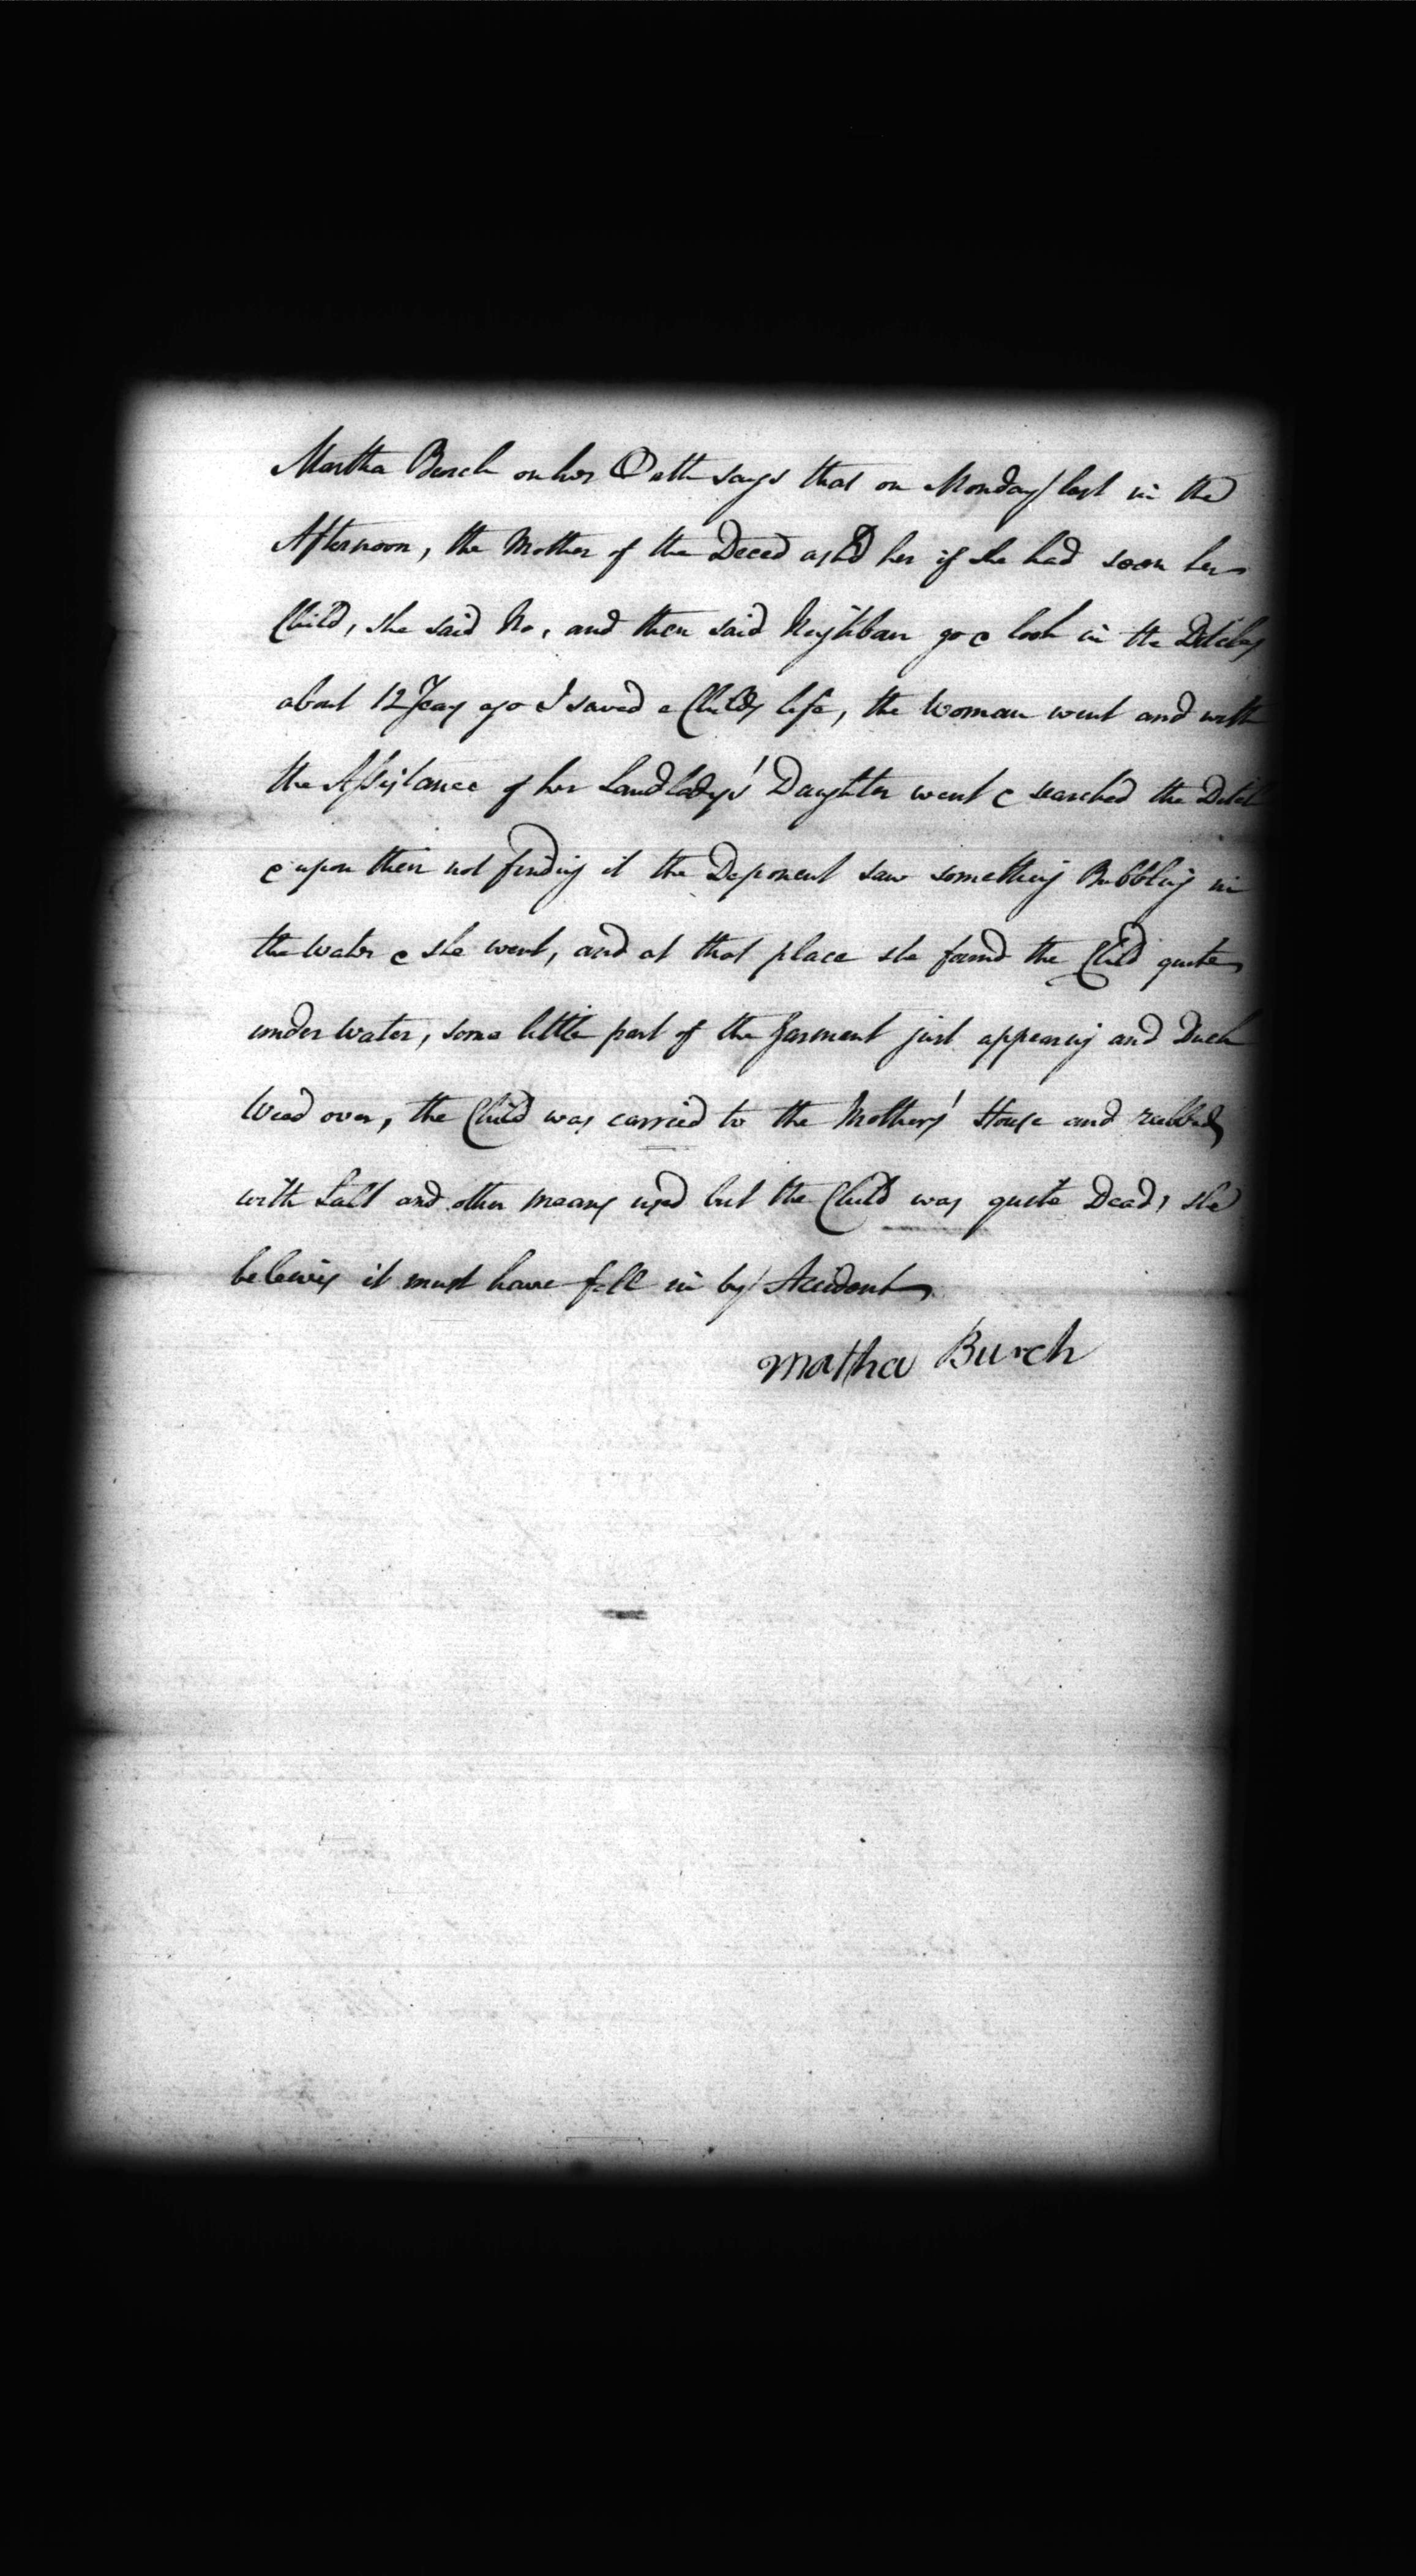 Martha Burch on her Oath says that on Monday last in the
Afternoon, the Mother of the Deced ask'd her if she had seen her
Child, she said No, and then said Neighbour go & look in the Ditches
about 12 Years ago I saved a Childs life, the Woman went and with
the Assistance of her Landladys' Daughter went & searched the Ditch
& upon their not finding it the Deponent saw something Bubbling in
the Water & she went, and at that place she found the Child quite
under Water, some little part of the Garment just appearing and Duck
Weed over, the Child was carried to the Mothers' House and rubbed
with Salt and other means used but the Child was quite Dead, she
beleives it must have fell in by Accident
Matha Burch